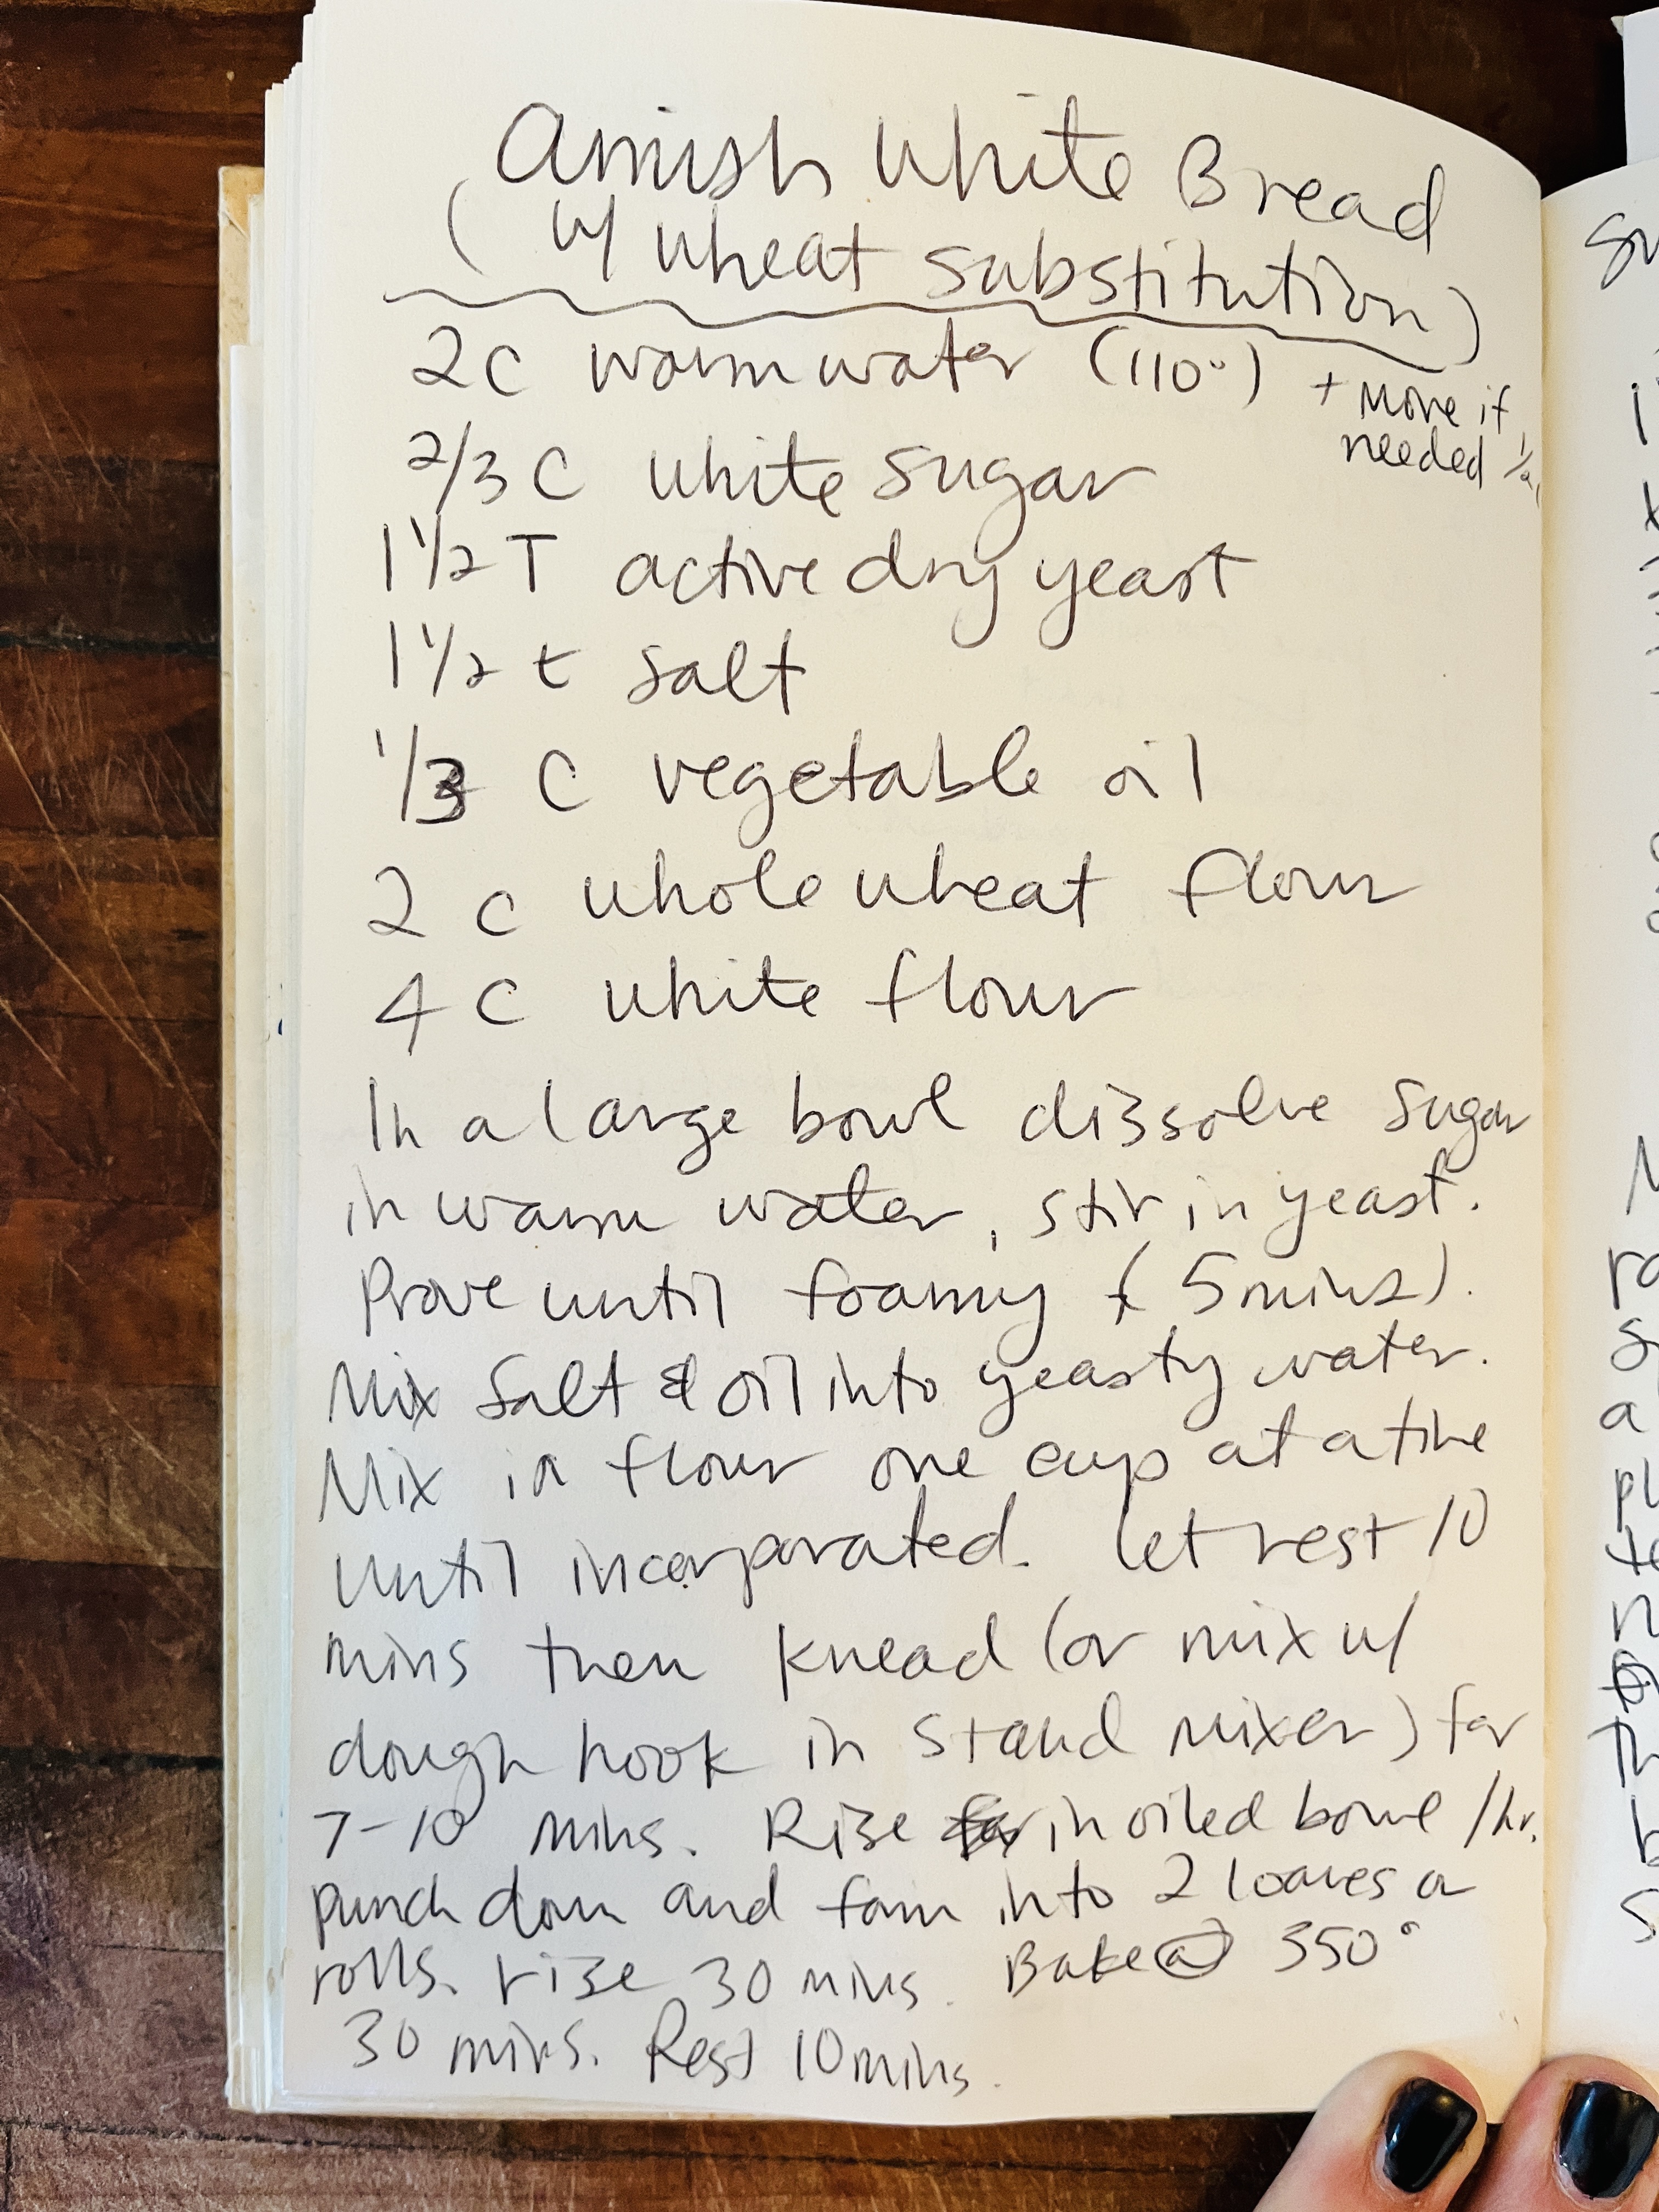 Amish White Bread
(w/ wheat substitution)
2C warm water (110°) + More if
needed 1/2
2/3 C white sugar
1 1/2 T active dry yeast
1 1/2 t salt
1/3 C vegetable oil
2 C whole wheat flour
4 C white flour
In a large bowl dissolve sugar
in warm water, stir in yeast.
Prove until foamy (5 mins).
Mix Salt & oil into yeasty water.
Mix in flour one cup at a time
until incorporated. Let rest 10
mins then knead (or mix w/
dough hook in stand mixer) for
7-10 mins. Rise in oiled bowl 1hr.
punch down and form into 2 loaves or
rolls. rise 30 mins. Bake @ 350°
30 mins. Rest 10 mins.